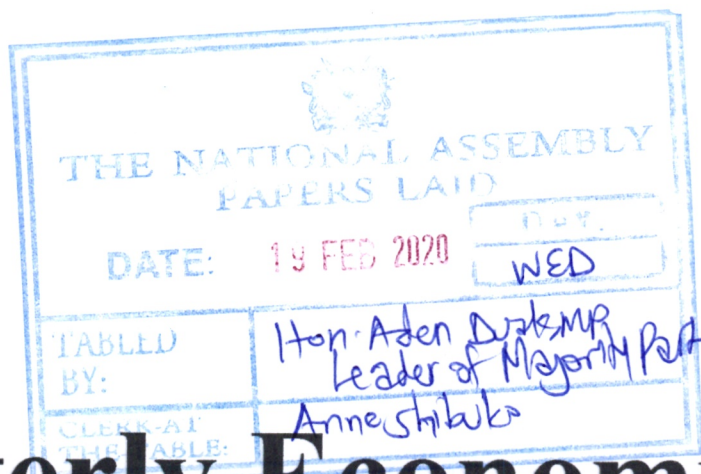 THE NATIONAL ASSEMBLY
PAPERS LAID
DAY.
DATE: 19 FEB 2020 WED
TABLED
BY:
Hon. Aden Duale, MP
Leader of Majority Party
CLERK-AT
THE-TABLE:
Anne Shibuko
erly Econom